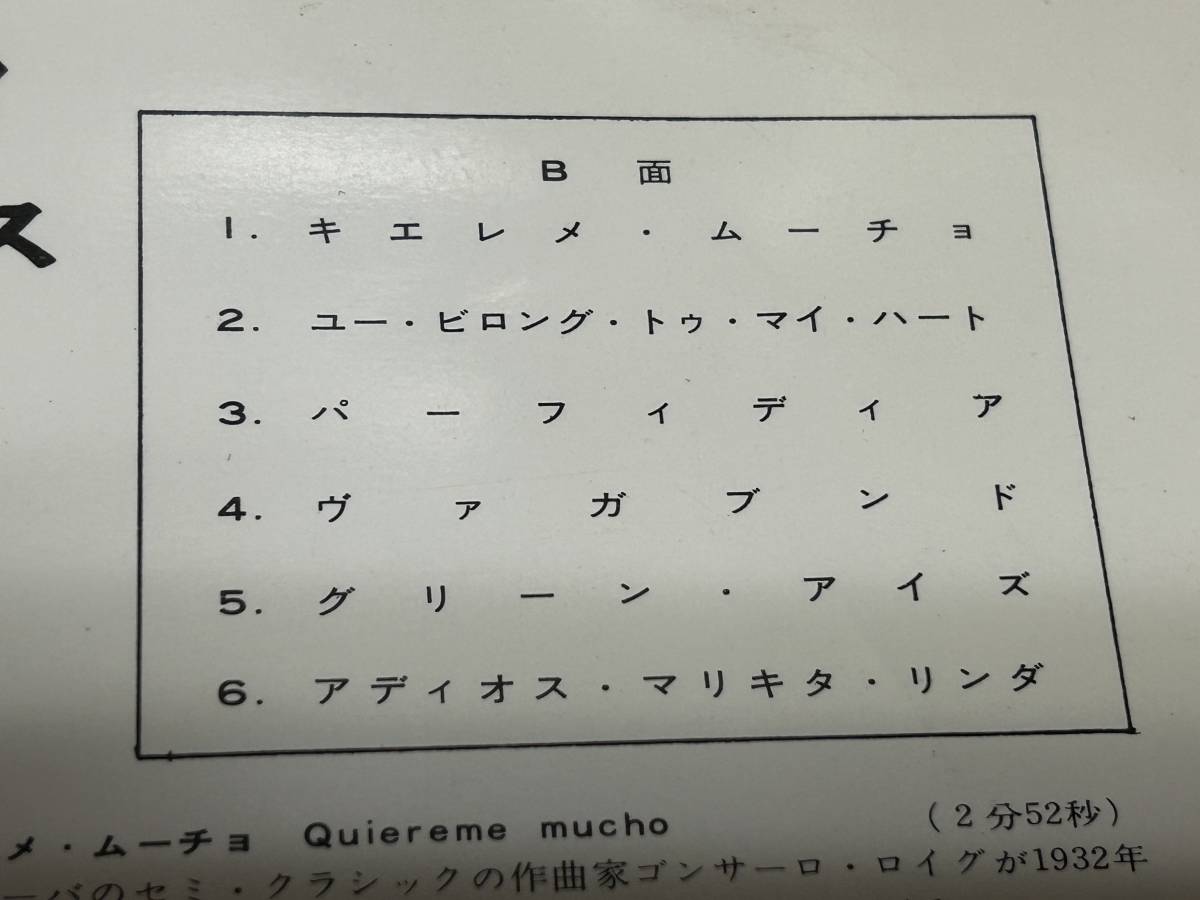 ス
B 面
1. キエレメ・ムーチョ
2. ユー・ビロング・トゥ・マイ・ハート
3. パーフィディア
4. ヴァガブンド
5. グリーン・アイズ
6. アディオス・マリキタ・リンダ
メ・ムーチョ Quiereme mucho (2分52秒)
ーバのセミ・クラシックの作曲家ゴンサーロ・ロイグが1932年